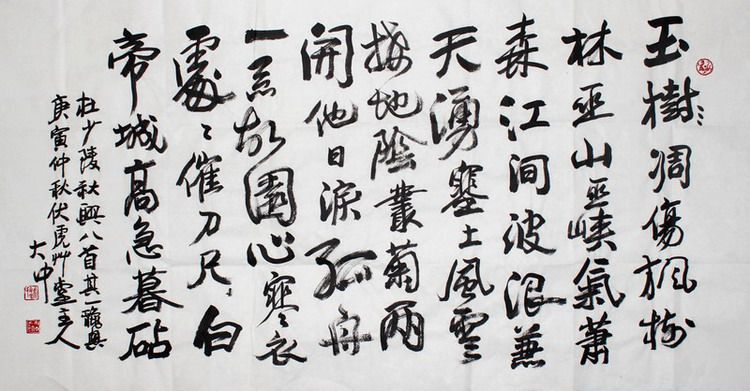 玉樹〻凋傷楓树
林巫山巫峽氣蕭
森江間波浪兼
天湧塞上風雲
接地陰叢菊兩
開他日淚孤舟
一系故園心寒衣
處〻催刀尺白
帝城高急暮砧
杜少陵秋興八首其一
庚寅仲秋伏虎艸堂主人
大中